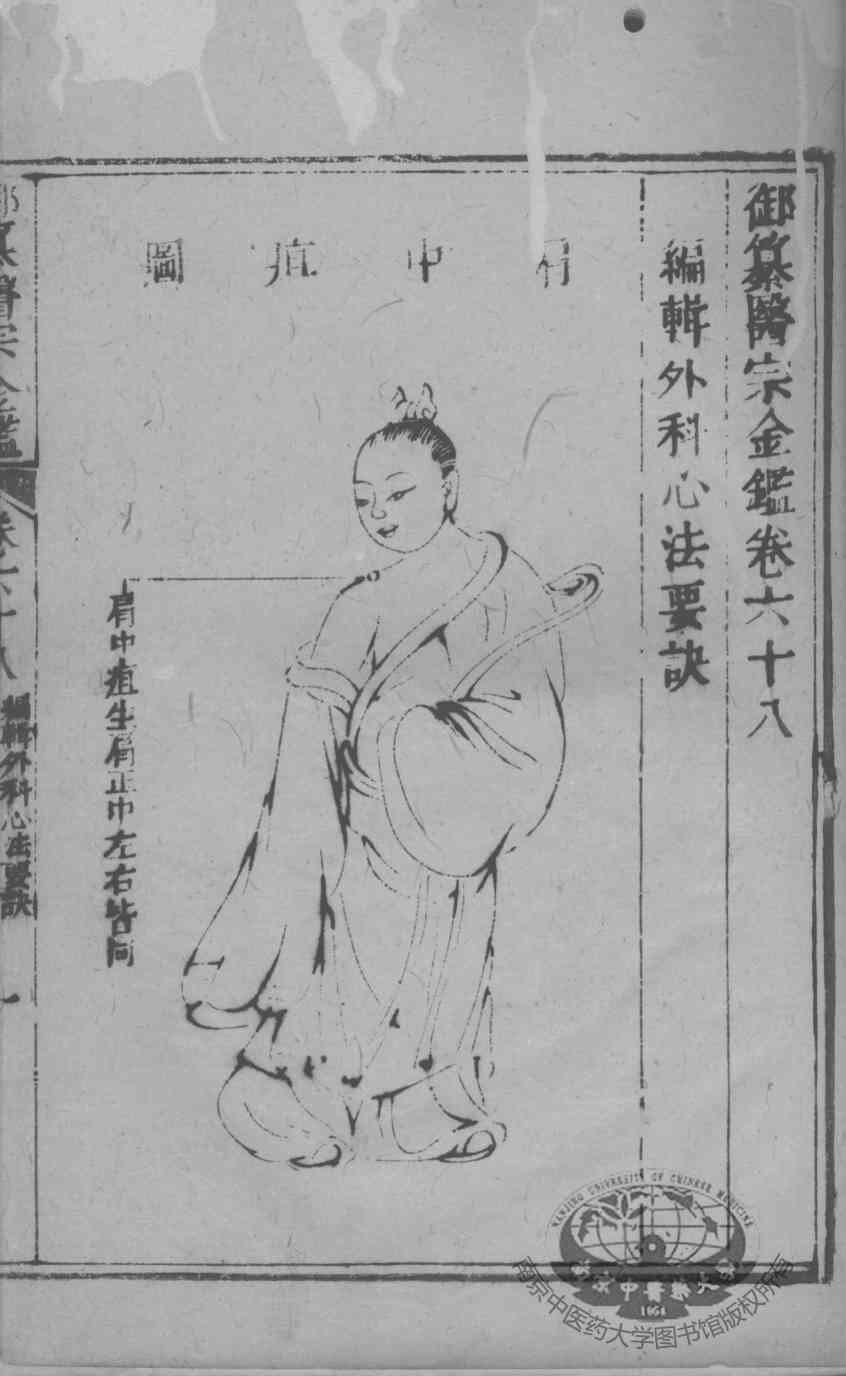 御纂醫宗金鑑卷六十八
編輯外科心法要訣
肩中疽圖
肩中疽生肩正中左右皆同
御纂醫宗金鑑
卷六十八
編輯外科心法要訣
一
NANJING UNIVERSITY OF CHINESE MEDICINE
南京中醫藥大學
1954
南京中医药大学图书馆版权所有